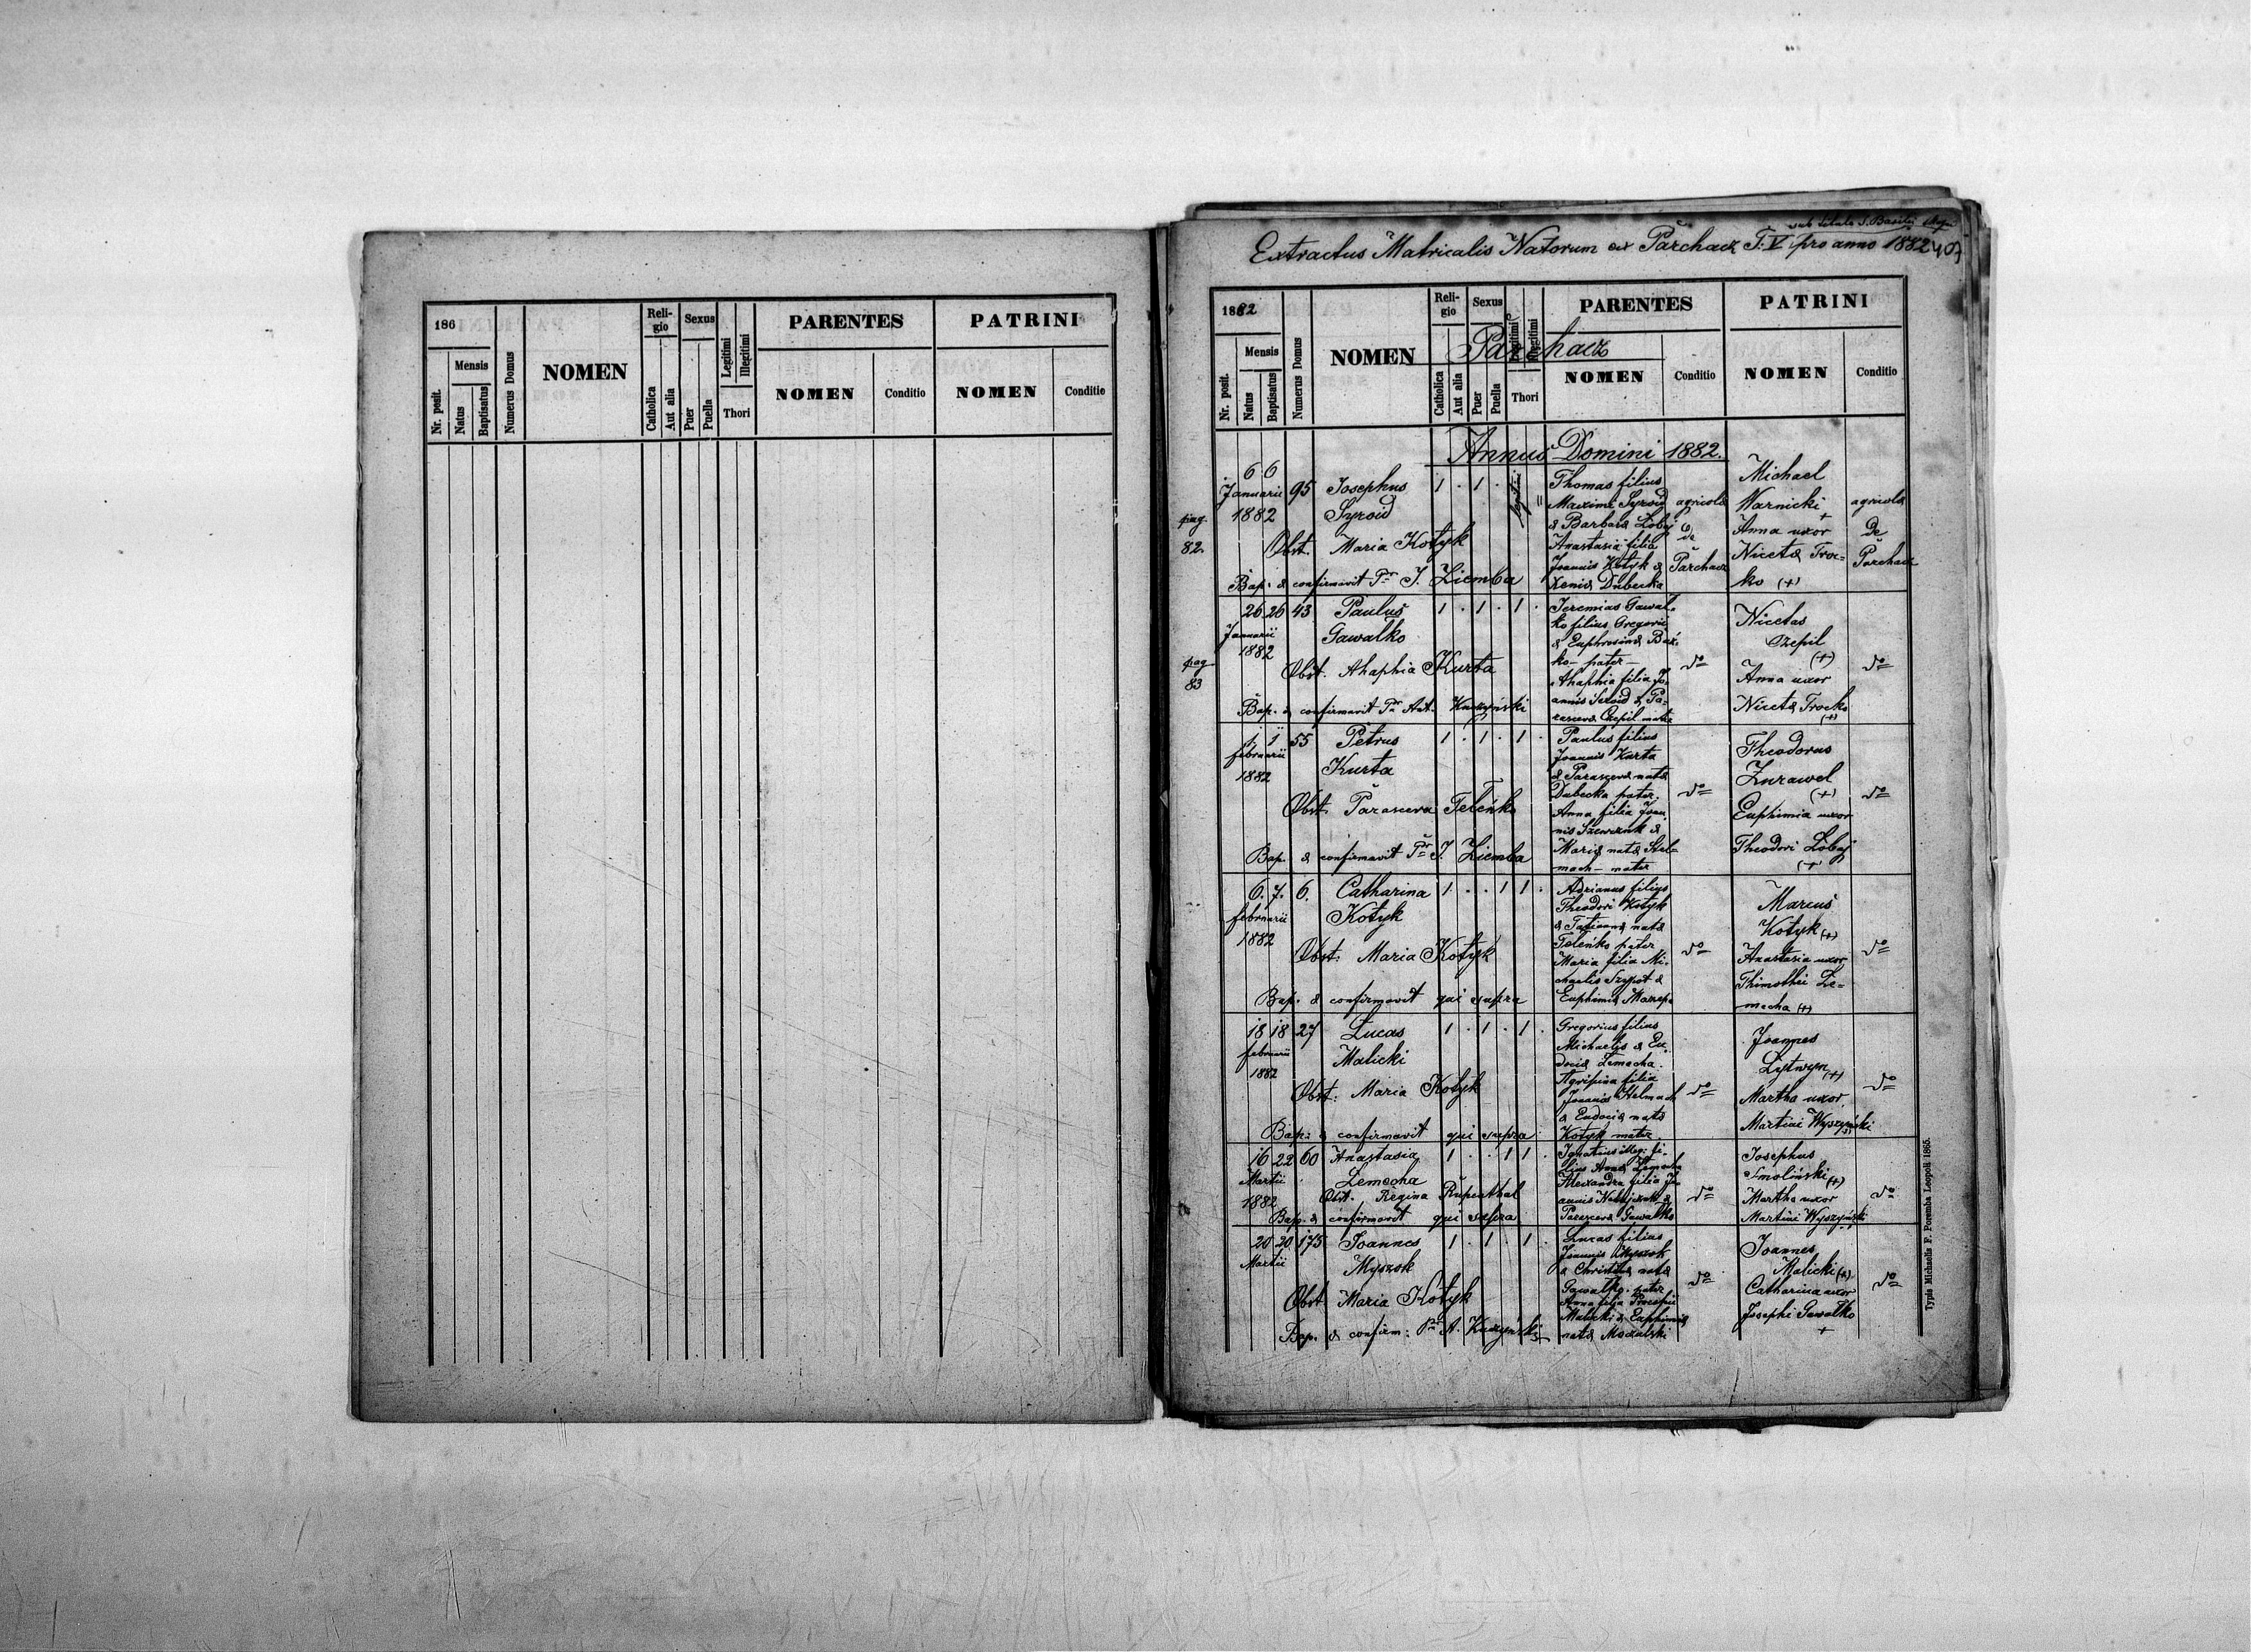 186
Nr. posit.
Mensis
Natus
Baptisatus
Numerus Domus
NOMEN
Reli-
gio
Catholica
Aut alia
Sexus
Puer
Puella
Legitimi
Illegitimi
Thori
PARENTES
NOMEN
Conditio
PATRINI
NOMEN
Conditio
sub titulo S. Basilii
Extractus Matricalis Natorum ex Parchacz T. V pro anno 1882
1882
Nr. posit.
Mensis
Natus
Baptisatus
Numerus Domus
NOMEN
Reli-
gio
Catholica
Aut alia
Sexus
Puer
Puella
Legitimi
Illegitimi
Thori
Parchacz
PARENTES
NOMEN
Conditio
PATRINI
NOMEN
Conditio
Annus Domini 1882.
pag.
82.
6 6
Januarii
1882
95
Josephus
Syroid
1 . 1 .
legitimi
Obst. Maria Kotyk
Bap. & confirmavit Pr. J. Ziemba
Thomas filius
Maximi Syroid
& Barbara Łobaj
Anastasia filia
Joannis Kotyk &
Xenia Dubecka
agricola
de
Parchacz
Michael
Warnicki
+
Anna uxor
Niceta Troc=
ko (+)
agricola
de
Parchacz
pag
83
26 26 43
Januarii
1882
Paulus
Gawalko
1 . 1 . 1 .
Obst. Ahaphia Kurta
Bap. & confirmavit Pr. Ant. Kuczyński
Jeremias Gawal-
ko filius Gregorii
ko - pater -
Ahaphia filia Jo-
annis Seroid & Pa-
rasceva Czepil mater
do
Nicetas
Czepil
(+)
Anna uxor
Niceta Trocko
(+)
do
1 1 55
februarii
1882
Petrus
Kurta
1 . 1 . 1 .
Obst. Parasceva Teleńko
Bap. & confirmavit Pr. J. Ziemba
Paulus filius
Joannis Kurta
& Parasceva nata
Dubecka pater.
Anna filia Joan
nis Szewczuk &
Maria nata Stel=
mach - mater
do
Theodorus
Żurawel
(+)
Euphimia uxor
Theodori Łobaj
(+)
do
6. 7. 6.
februarii
1882
Catharina
Kotyk
1 . . 1 1 .
Obst: Maria Kotyk
Bap. & confirmavit qui supra
Adrianus filius
Theodori Kotyk
& Tatianna nata
Teleńko pater
Maria filia Mi-
chaelis Szypot &
Euphimia
do
Marcus
Kotyk (+)
Anastasia uxor
Thimothei Le=
mecha (+)
do
18 18 27
februarii
1882
Lucas
Malicki
1 . 1 . 1 .
Obst: Maria Kotyk
Bap: & confirmavit qui supra
Gregorius filius
Michaelis & Eu-
docia Lemecha.
Agripina filia
Joannis Stelmach
& Eudocia nata
Kotyk mater
do
Joannes
Lytwyn (+)
Martha uxor
Martini Wyszyński
do
16 22 60
Martii
1882
Anastasia
Lemecha
1 . . 1 1 .
Obst. Regina Rupenthal
Bap. & confirmavit qui supra
Ignatius illeg: fi-
lius Anna Lemecha
Alexandra filia Jo-
annis
Parasceva Gawalko
do
Josephus
Smoliński (+)
Martha uxor
Martini Wyszyński
do
20 20 175
Martii
Joannes
Myszok
1 . 1 . 1 .
Obst Maria Kotyk
Bap. & confirm: Pr A. Kuczyński
Lucas filius
Joannis Myszok
& Christina nata
Gawalko. pater
Anna filia Procopii
Malicki & Euphimia
nata Moczulski
do
Joannes
Malicki (+)
Catharina uxor
Josephi Gawalko
+
do
Typis Michaelis F. Poremba Leopoli 1865.